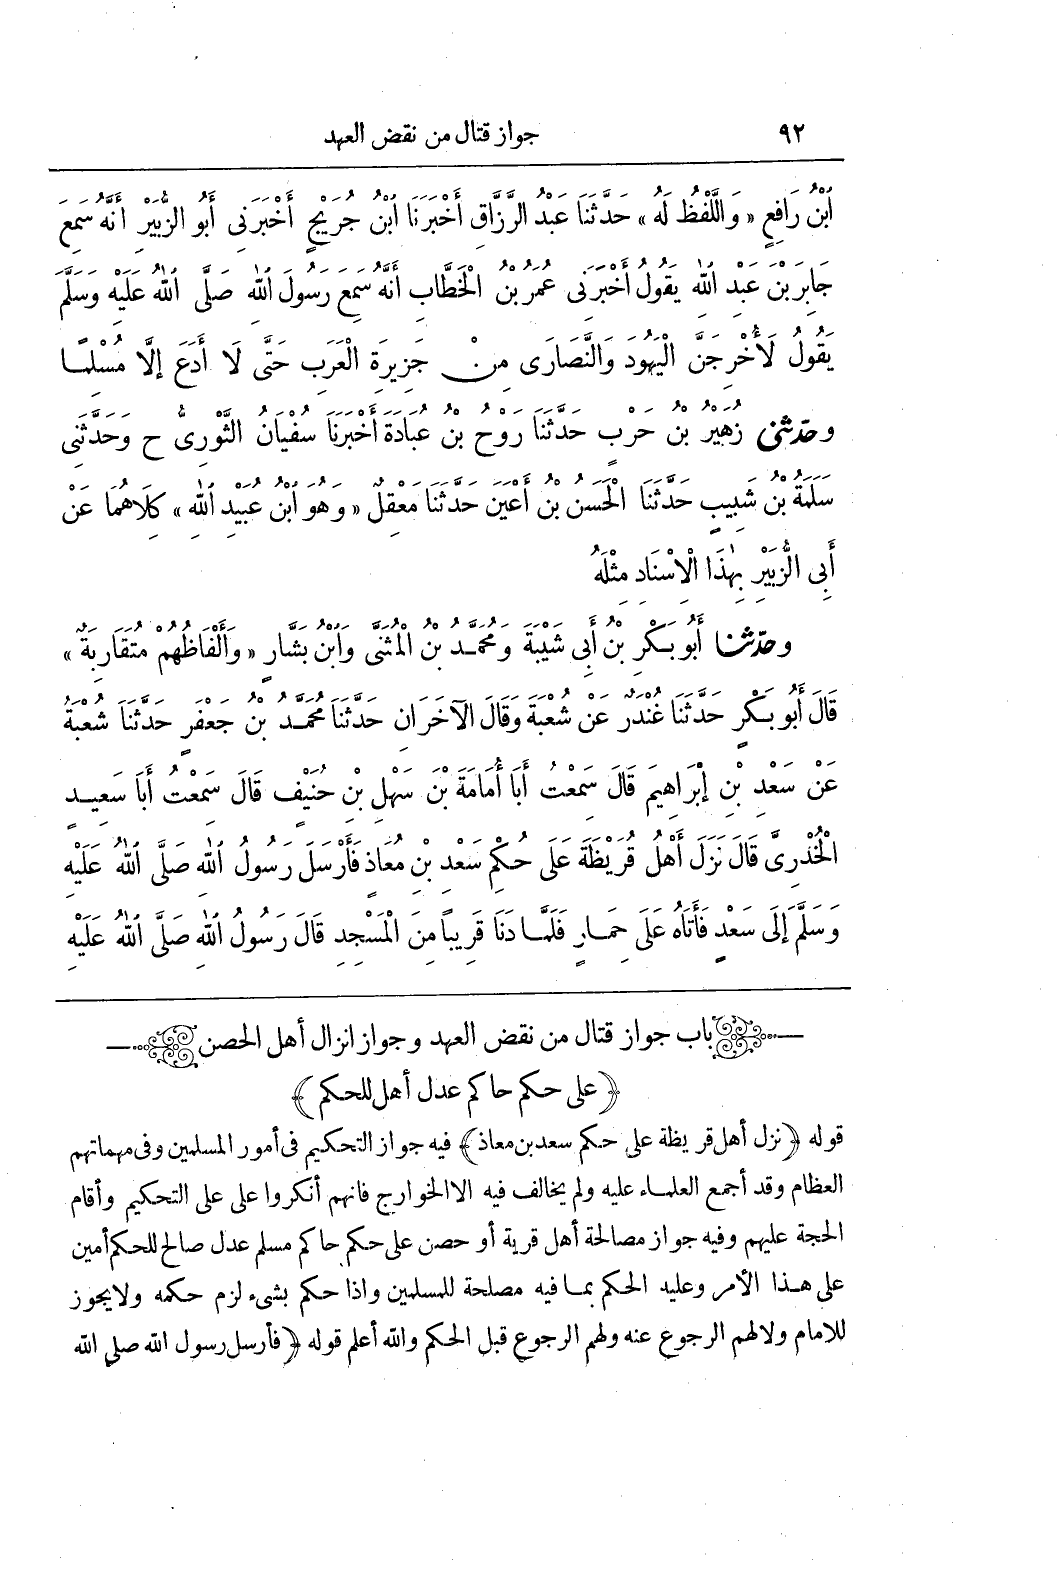 ٩٢ جواز قتال من نقض العهد
ابْنُ رَافِعٍ «وَاللَّفْظُ لَهُ» حَدَّثَنَا عَبْدُ الرَّزَّاقِ أَخْبَرَنَا ابْنُ جُرَيْجٍ أَخْبَرَنِى أَبُو الزُّبَيْرِ أَنَّهُ سَمِعَ
جَابِرَ بْنَ عَبْدِ اللّٰهِ يَقُولُ أَخْبَرَنِى عُمَرُ بْنُ الْخَطَّابِ أَنَّهُ سَمِعَ رَسُولَ اللّٰهِ صَلَّى اللّٰهُ عَلَيْهِ وَسَلَّمَ
يَقُولُ لَأُخْرِجَنَّ الْيَهُودَ وَالنَّصَارَى مِنْ جَزِيرَةِ الْعَرَبِ حَتَّى لَا أَدَعَ إِلَّا مُسْلِمًا
وحدّثنى زُهَيْرُ بْنُ حَرْبٍ حَدَّثَنَا رَوْحُ بْنُ عُبَادَةَ أَخْبَرَنَا سُفْيَانُ الثَّوْرِىُّ ح وَحَدَّثَنِى
سَلَمَةُ بْنُ شَبِيبٍ حَدَّثَنَا الْحَسَنُ بْنُ أَعْيَنَ حَدَّثَنَا مَعْقِلٌ «وَهُوَ ابْنُ عُبَيْدِ اللّٰهِ» كِلَاهُمَا عَنْ
أَبِى الزُّبَيْرِ بِهٰذَا الْاِسْنَادِ مِثْلَهُ
وحدّثنا أَبُو بَكْرِ بْنُ أَبِى شَيْبَةَ وَمُحَمَّدُ بْنُ الْمُثَنَّى وَابْنُ بَشَّارٍ «وَأَلْفَاظُهُمْ مُتَقَارِبَةٌ»
قَالَ أَبُو بَكْرٍ حَدَّثَنَا غُنْدَرٌ عَنْ شُعْبَةَ وَقَالَ الْآخَرَانِ حَدَّثَنَا مُحَمَّدُ بْنُ جَعْفَرٍ حَدَّثَنَا شُعْبَةُ
عَنْ سَعْدِ بْنِ إِبْرَاهِيمَ قَالَ سَمِعْتُ أَبَا أُمَامَةَ بْنَ سَهْلِ بْنِ حُنَيْفٍ قَالَ سَمِعْتُ أَبَا سَعِيدٍ
الْخُدْرِىَّ قَالَ نَزَلَ أَهْلُ قُرَيْظَةَ عَلَى حُكْمِ سَعْدِ بْنِ مُعَاذٍ فَأَرْسَلَ رَسُولُ اللّٰهِ صَلَّى اللّٰهُ عَلَيْهِ
وَسَلَّمَ إِلَى سَعْدٍ فَأَتَاهُ عَلَى حِمَارٍ فَلَمَّا دَنَا قَرِيبًا مِنَ الْمَسْجِدِ قَالَ رَسُولُ اللّٰهِ صَلَّى اللّٰهُ عَلَيْهِ
باب جواز قتال من نقض العهد وجواز انزال أهل الحصن
﴿على حكم حاكم عدل أهل للحكم﴾
قوله ﴿نزل أهل قريظة على حكم سعد بن معاذ﴾ فيه جواز التحكيم فى أمور المسلمين وفى مهماتهم
العظام وقد أجمع العلماء عليه ولم يخالف فيه الا الخوارج فانهم أنكروا على على التحكيم وأقام
الحجة عليهم وفيه جواز مصالحة أهل قرية أو حصن على حكم حاكم مسلم عدل صالح للحكم أمين
على هذا الأمر وعليه الحكم بما فيه مصلحة للمسلمين واذا حكم بشىء لزم حكمه ولا يجوز
للامام ولا لهم الرجوع عنه ولهم الرجوع قبل الحكم والله أعلم قوله ﴿فأرسل رسول الله صلى الله